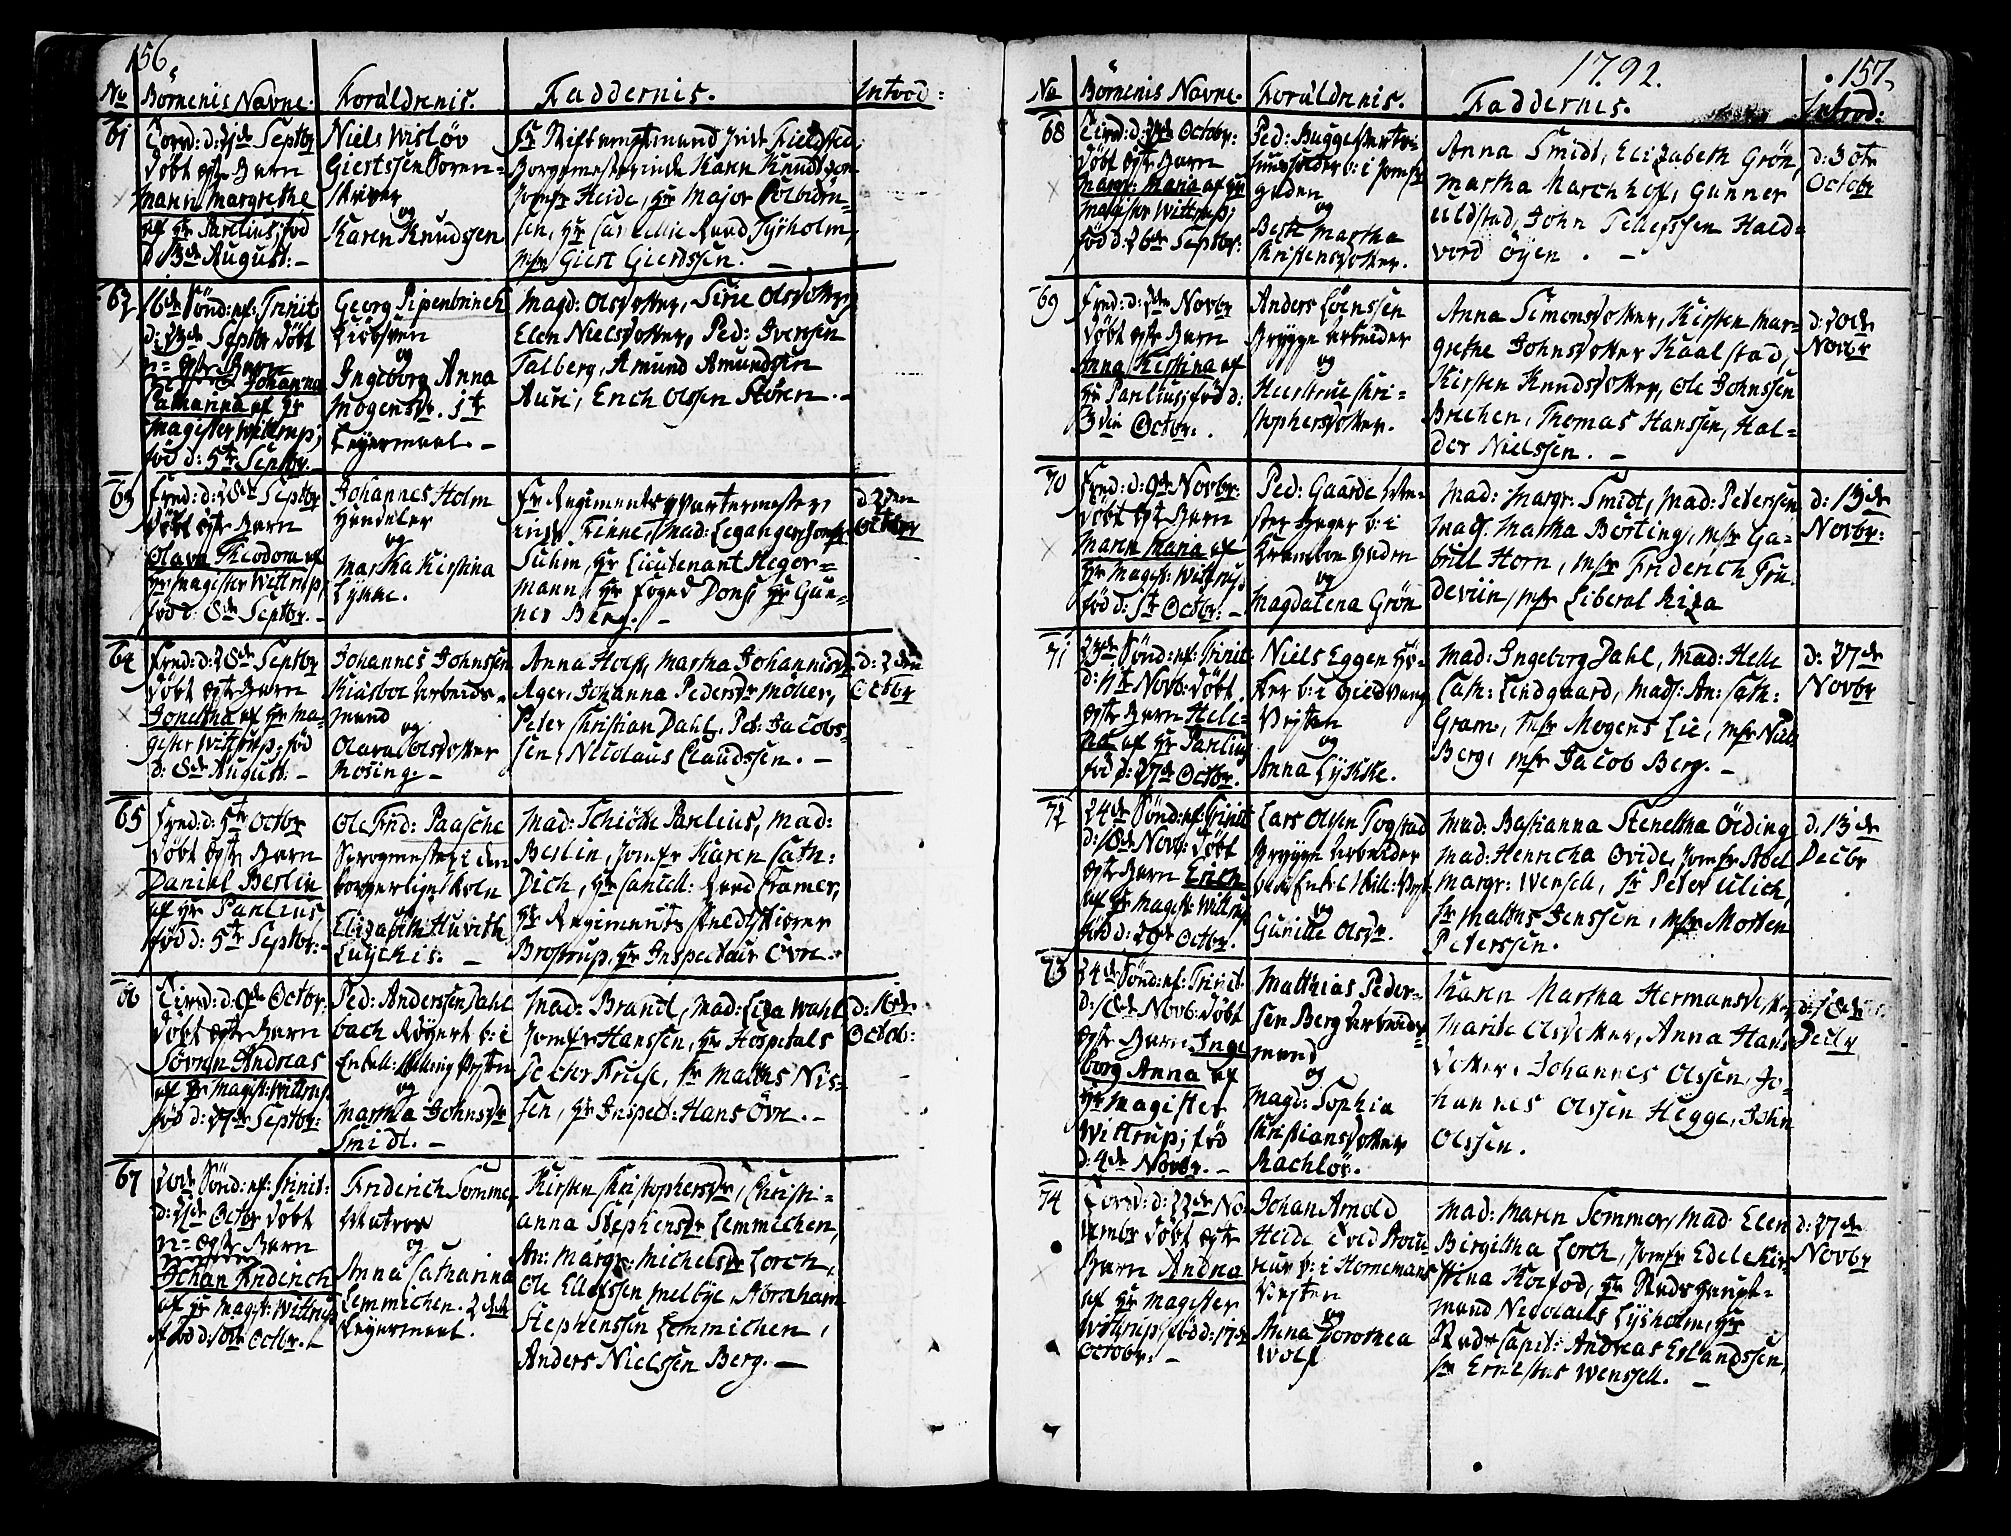 156
No Börnenis Navne. Foräldrenis. Faddernis. Introd:
61
Torsd: d: 21de Septbr
döbt egte Barn
Maren Margrethe
af Hr Parelius, föd
d: 13de August. –
Niels Wislöv
Giertssen Toren-
skriver
og
Karen Knudtzen
Fr Stiftamtmand
Borgemesterinde Karen Knudtzon
Jomfr Heide, Hr Major Colbiörn-
sen, Hr Cancellie Raad Lysholm,
Msr Giert Giertssen. –
62
16de Sönd: ef: Trinit
d: 23de Septbr döbt
u= egte Barn
Johanna
Catharina af Hr
Magister Wittrup,
föd d: 5te Septbr. –
Georg Pipenbrinck
og
Ingeborg Anna
Mogensdr. 1te
Leyermaal. –
Magd: Olsdotter, Siri Olsdotter
Elen Nielsdotter, Ped: Iversen
Talberg, Amund Amundsen
Aune, Erich Olssen Stören. –
63
Fred: d: 28de Septbr
döbt egte Barn
Olava Theodora af
Hr Magister Wittrup,
föd d: 8de Septbr. –
Johannes Holm
Handeler
og
Martha Kirstina
Lykke.
Fr Regiments Qvartermester
inde Finne, Mad: Leganger, Jomfr
Suhm, Hr Lieutenant Heger-
mann, Hr Foged Dons, Hr Gun-
ner Berg. –
d: 2den
Octbr
64
Fred: d: 28de Septbr
döbt egte Barn
Jonetha af Hr Ma-
gister Wittrup, föd
d: 8de August. –
Johannes Johnssen
Kiäsboe Arbeids-
mand
og
Olava Olsdotter
Mosing. –
Anna Holst, Martha Johannisdr
Ager, Johanna Pedersdr Möller,
Peter Christian Dahl, Ped: Jacobs-
sen, Nicolaus Claudssen. –
d: 2den
Octbr
65
Fred: d: 5te Octbr
döbt egte Barn
Daniel Berlin
af Hr Parelius
föd d: 5te Septbr: –
Ole Frid: Paasche
Sprogmester i den
borgerlige Skole
og
Elizabeth Huvith
Luyckis. –
Mad: Schiötte Parelius, Mad:
Berlin, Jomfr Karen Cath:
Dich, Hr Cancell: Raad Framer,
Hr Regiments
Brostrup, Hr Inspecteur Övre.
66
Tirsd: d: 9de Octbr.
döbt egte Barn
Sövren Andreas
af Hr Magist: Wittrup
föd d: 27de Septbr:
Ped: Anderssen Dahl
bach Röyert b: i
Enkell: Veyten
og
Martha Johnsdr
Smidt. –
Mad: Brandt, Mad: Liza Wahl
Jomfr Hanssen, Hr Hospitals
Docter Friese, Sr Matths Nis-
sen, Hr Inspect: Hans Övre. –
d: 16de
Octob:
67
20de Sönd: ef: Trinit:
d: 21de Octbr döbt
u= egte Barn
Johan Friderich
af Hr Magist: Wittrup
föd d: 10de Octbr. –
Friderich Sommer
Matros
og
Anna Catharina
Lemmichen. 2det
Leyermaal.
Kirsten Christophersdr, Christi-
anna Stephensdr Lemmichen,
An: Margr: Michelsdr Lorch,
Ole Ellefssen Melbye, Abraham
Stephenssen Lemmichen,
Anders Nielssen Berg. –
1792. 157
No Börnenis Navne. Foräldrenis. Faddernis. Introd:
68
Tirsd: d: 2de Octbr:
döbt egte Barn
Margr: Maria af Hr
Magister Wittrup,
föd d: 26de Septbr:
Ped: Bugge
b: i Jomfr
gaden
og
Berth Martha
Christensdotter.
Anna Smidt, Elizabeth Grön,
Martha Marchhof, Gunner
Uldstad, John Tellefssen, Hald-
vord Öyen. –
d: 30te
Octobr
69
Fred: d: 2de Novbr
döbt egte Barn
Anna Kirstina af
Hr Parelius, föd d:
3die Octbr.
Anders Löenssen
Brygge Arbeider
og
Chri-
stophersdotter.
Anna Simonsdotter, Kirsten Mar-
grethe Johnsdotter Kaalstad,
Kirsten Knudsdotter, Ole Johnssen
Brechen, Thomas Hanssen, Hal-
dor Nielssen. –
d: 20de
Novbr
70
Fred: d: 9de Novbr:
döbt egte Barn
Maren Maria af
Hr Magist: Wittrup,
föd d: 1te Octbr: –
Ped: Gaarde
b: i
Krambod gaden
og
Magdalena Grön
Mad: Margr: Smidt, Mad: Peterssen
Mad: Martha Börting, Msr Ga-
briel Horn, Msr Friderich Tru
deviin, Msr Liberal Riza
d: 13de
Novbr:
71
23de Sönd: ef: Trinit
d: 11te Novb: döbt
egte Barn Hele-
na af Hr Parelius
föd d: 27de Octbr.
Niels Eggen Hö-
ker b: i Gieldvang
Veyten
og
Anna Lykke.
Mad: Ingeborg Dahl, Mad: Helle
Cath: Lindgaard, Mad: An: Cath:
Gram, Msr Mogens Lie, Msr Niels
Berg, Msr Jacob Berg. –
d: 27de
Novbr
72
24de Sönd: ef: Trinit
d: 18de Novb: döbt
egte Barn Erich
af Hr Magist: Wittrup
föd d: 29de Octbr.
Lars Olsen Togstad
Brygge Arbeider
og
Guritte Olsdr.
Mad: Bastianna Stenetha Ölding
Mad: Henricha Ovide, Jomfr Abel
Margr: Wensell, Sr Peter Ulich,
Sr Matths Jenssen, Msr Morten
Peterssen.
d: 13de
Decbr
73
24de Sönd: ef: Trinit
d: 18de Novb: döbt
egte Barn Inge
borg Anna af
Hr Magister
Wittrup, föd
d: 4de Novbr. –
Matthias Peder-
sen Berg Arbeids-
mand
og
Magd: Sophia
Christiansdotter
Rachlöv.
Karen Martha Hermansdotter
Marith Olsdotter, Anna Hans
dotter, Johannes Olssen, Jo-
hannes Olssen Hegge, John
Olssen.
d: 18de
Decbr
74
Torsd: d: 22de No
vembr döbt egte
Barn Andrea
af Hr Magister
Wittrup, föd d: 17de
Octobr. –
Johan Arnold
Heide
b: i Hornemans
Veyten
og
Anna Dorothea
Wolf
Mad: Maren Sommer, Mad: Elen
Birgitha Lorch, Jomfr Edele Kir-
stina Koefod, Hr Stads Haupt-
mand Nicolaus Lysholm, Hr
Stads Capit: Andreas Erlandssen,
Sr Ernestus Wensell. –
d: 27de
Novbr